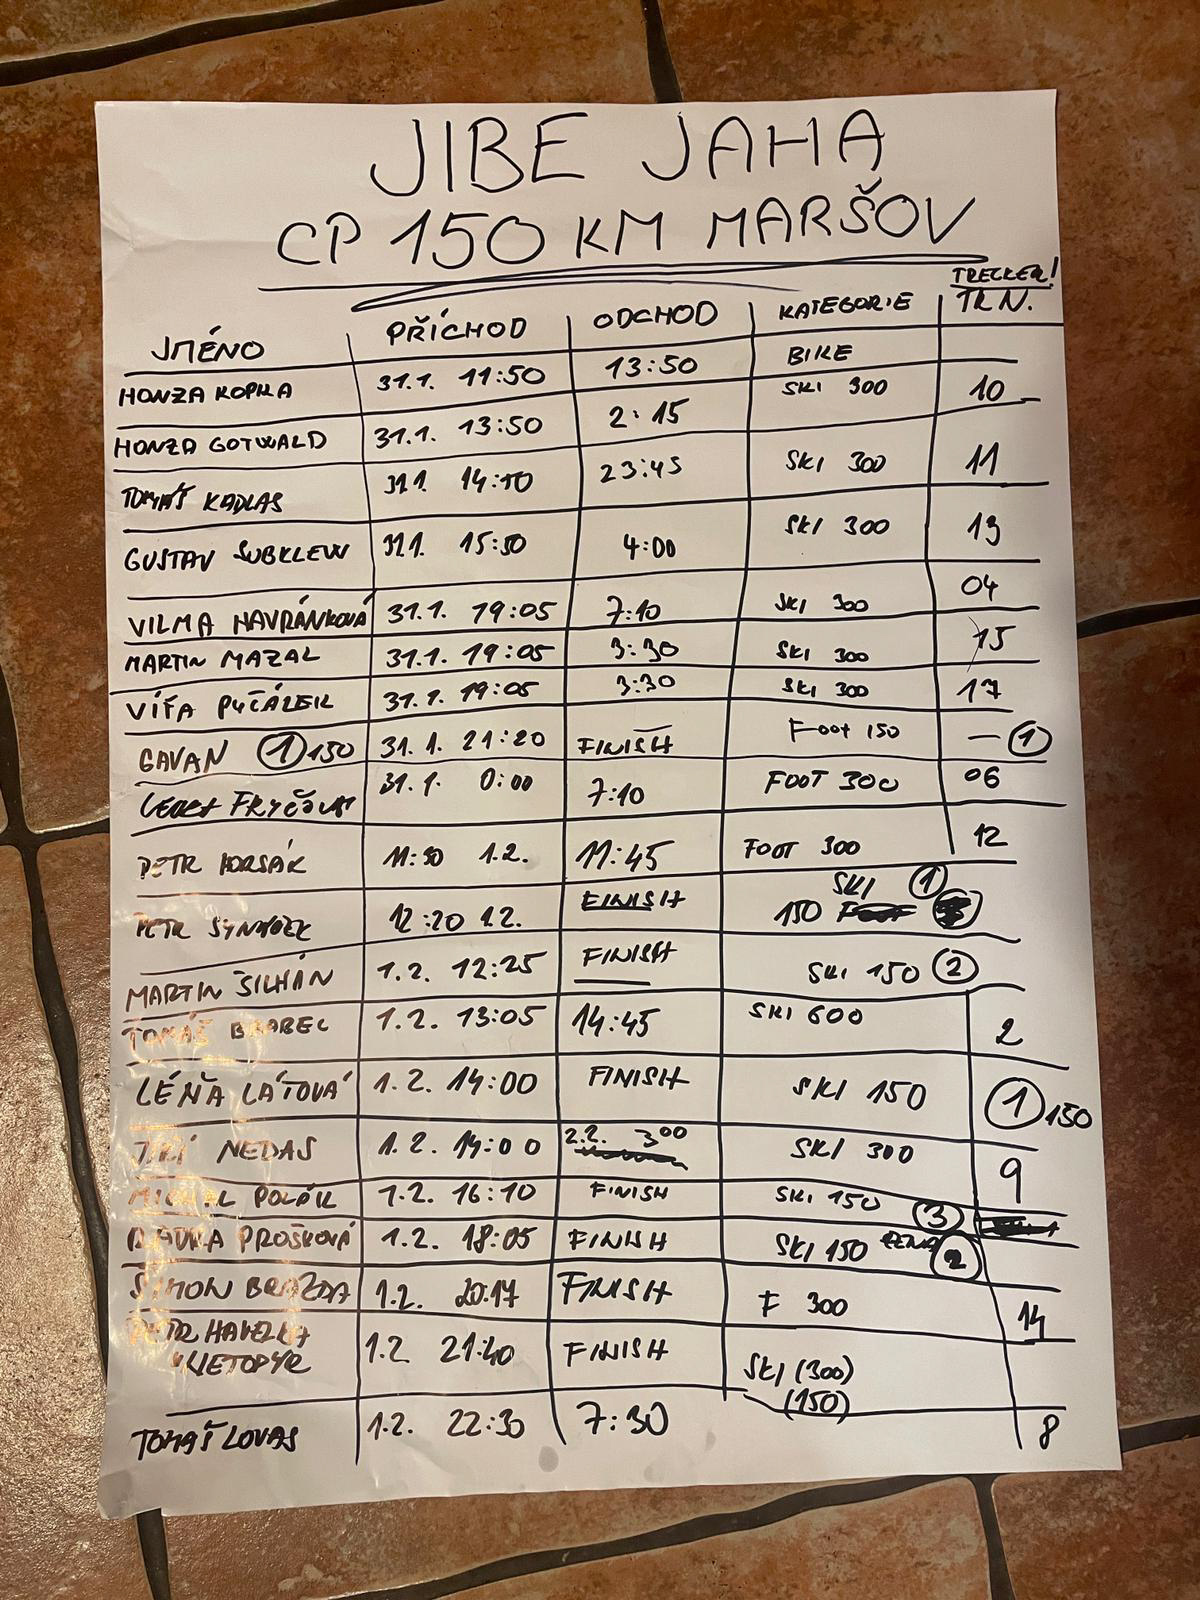 JIBE JAHA
CP 150 KM MARŠOV
TRECKER!
JMÉNO PŘÍCHOD ODCHOD KATEGORIE TR.N.
HONZA KOPKA 31.1. 11:50 13:50 BIKE
HONZA GOTWALD 31.1. 13:50 2:15 SKI 300 10
TOMÁŠ KADLAS 31.1. 14:10 23:45 SKI 300 11
GUSTAV SUBKLEW 31.1. 15:50 4:00 SKI 300 13
VILMA HAVRÁNKOVÁ 31.1. 19:05 7:10 SKI 300 04
MARTIN MAZAL 31.1. 19:05 3:30 SKI 300 15
VÍŤA PYČÁREK 31.1. 19:05 3:30 SKI 300 17
GAVAN 1 150 31.1. 21:20 FINISH FOOT 150 — 1
31.1. 0:00 7:10 FOOT 300 06
PETR 11:30 1.2. 11:45 FOOT 300 12
PETR 12:20 1.2. FINISH SKI 1
150
MARTIN ŠILHÁN 1.2. 12:25 FINISH SKI 150 2
TOMÁŠ BRABEC 1.2. 13:05 14:45 SKI 600 2
LÉŇA LÁTOVÁ 1.2. 14:00 FINISH SKI 150 1 150
JIŘÍ NEDAS 1.2. 14:00 2.2. 3:00 SKI 300 9
MICHAL POLÁK 1.2. 16:10 FINISH SKI 150 3
PROŠKOVÁ 1.2. 18:05 FINISH SKI 150 ŽENA 2
ŠIMON BRAZDA 1.2. 20:17 FINISH F 300 14
PETR HAVELKA
NETOPYR 1.2. 21:40 FINISH SKI (300)
(150)
TOMAŠ LOVAS 1.2. 22:30 7:30 8